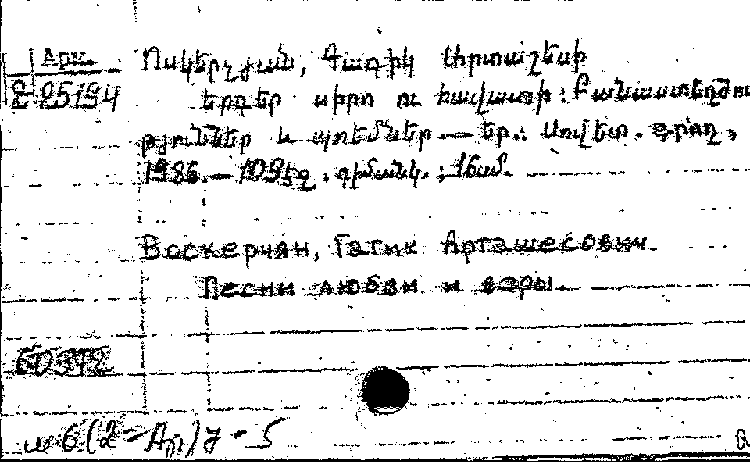 Արմ.
Ոսկերչյան, Գագիկ Արտաշեսի
2-25194
երգեր սիրո ու հավատի: Բանաստեղծու
թյուններ և պոեմներ — Եր.: Սովետ. գրող,
1986. — 109 էջ. դիմանկ.; 16սմ.
Воскерчян, Гагик Арташесович.
Песни любви и веры.
60972